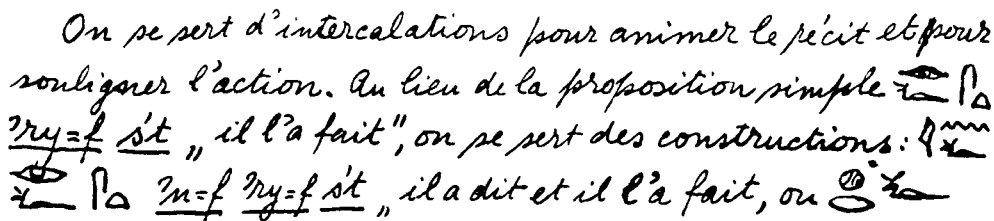 On se sert d'intercalations pour animer le récit et pour
souligner l'action. Au lieu de la proposition simple 𓁹𓆑 𓋴𓏏
ꞽry=f śt „ il l'a fait", on se sert des constructions: 𓇋𓈖𓆑
𓁹𓆑 𓋴𓏏 ꞽn=f ꞽry=f śt „ il a dit et il l'a fait, ou 𓐍𓂋𓆑